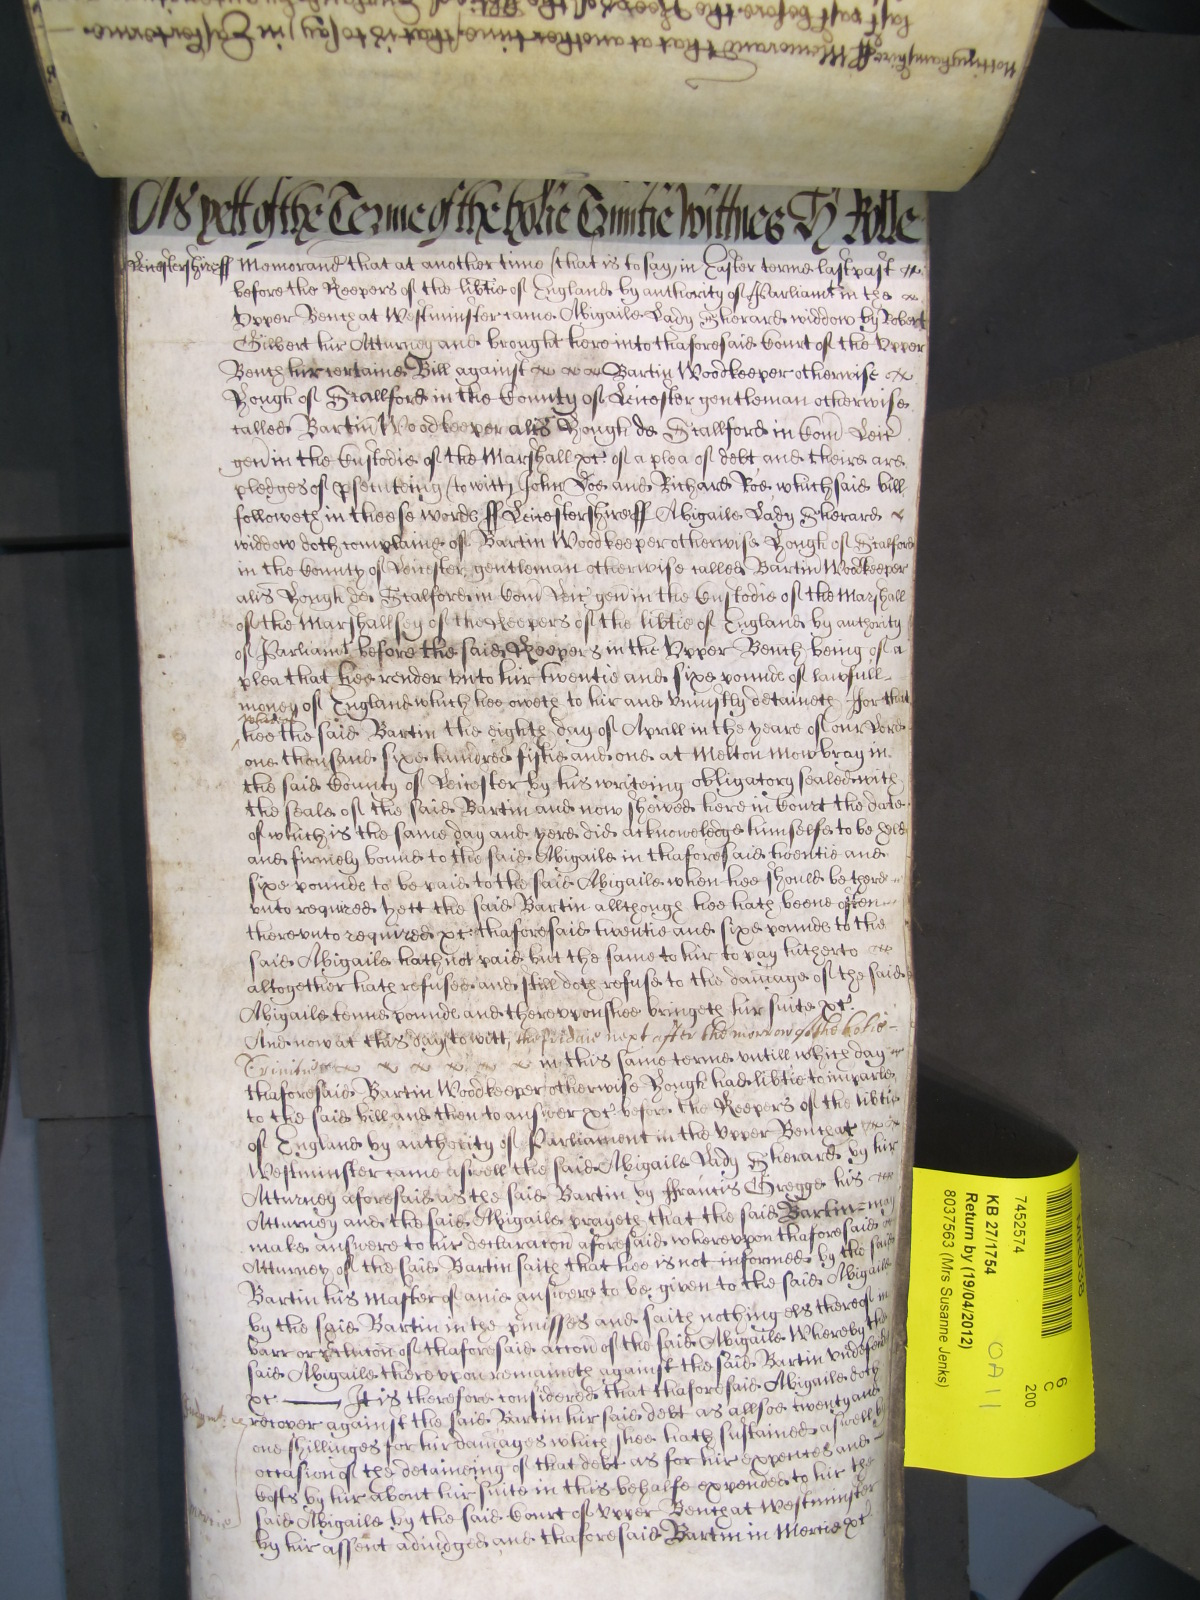 Nottinghamshire ff Memorand that at another time (that is to say) in Easter terme
last past before the Keepers of the
As yett of the Terme of the holie Trinitie Wittnes H Rolle
Leicestershire ff Memorand that at another time (that is to say) in Easter terme last past
before the Keepers of the libtie of England by authority of Parliamt in the
Upper Bench at Westminster came Abigaile Lady Sherard widdow by Robert
Gilbert hir Atturney and brought here into thaforesaid Court of the Upper
Bench hir certaine Bill against Bartin Woodkeeper otherwise
Hough of Stallford in the County of Leicester gentleman otherwise
called Bartin Woodkeeper alis Hough de Stallford in Com Leic
gen in the Custodie of the Marshall xt of a plea of debt and theire are
pledges of psecuteing (to witt) John Doe and Richard Roe which said bill
followeth in theese words ff Leicestershire ff Abigaile Lady Sherard
widdow doth complaine of Bartin Woodkeeper otherwise Hough of Stalford
in the County of Leicester gentleman otherwise called Bartin Woodkeeper
alis Hough de Stalford in Com Leic gen in the Custodie of the Marshall
of the Marshallsey of the Keepers of the libtie of England by authority
of Parliamt before the said Keepers in the Upper Bench being of a
plea that hee render unto hir twentie and sixe pounds of lawfull
money of England which hee oweth to hir and uniustly detaineth ffor that
whereas
hee the said Bartin the eighth day of Aprill in the yeare of our Lord
one thousand sixe hundred fiftie and one at Melton Mowbray in
the said County of Leicester by his writeing obligatory sealed with
the seale of the said Bartin and now shewed here in Court the date
of which is the same day and yere did acknowledge himselfe to be held
and firmely bound to the said Abigaile in thaforesaid twentie and
sixe pounds to be paid to the said Abigaile when hee should be there
unto required yett the said Bartin allthough hee hath beene often
thereunto required xt thaforesaid twentie and sixe pounds to the
said Abigaile hath not paid but the same to hir to pay hitherto
altogether hath refused and still doth refuse to the damage of the said
Abigaile tenne pounds and thereupon shee bringeth hir suite xt
And now at this day (to witt) the fridaie next after the morrow of the holie
Trinitie in this same terme untill which day
thaforesaid Bartin Woodkeeper otherwise Hough had libtie to imparle
to the said bill and then to answer xt before the Keepers of the libtie
of England by authority of Parliament in the Upper Bench at
Westminster came aswell the said Abigaile Lady Sherard by hir
Atturney aforesaid as the said Bartin by ffrancis Gregge his
Atturney and the said Abigaile prayeth that the said Bartin may
make answere to hir declaracon aforesaid whereupon thaforesaid
Atturney of the said Bartin saith that hee is not informed by the said
Bartin his Master of anie answere to be given to the said Abigaile
by the said Bartin in the pmisses and saith nothing els thereof in
barr or pclusion of thaforesaid accon of the said Abigaile Whereby the
said Abigaile thereupon remaineth against the said Bartin undefended
xt It is therefore considered that thaforesaid Abigaile doth
recover against the said Bartin hir said debt as allsoe twenty and
one shillinges for hir damages which shee hath sustained aswell by
occasion of the detaineing of that debt as for hir expences and
Costs by hir about hir suite in this behalfe expended to hir the
said Abigaile by the said Court of Upper Bench at Westminster
by hir assent adiudged and thaforesaid Bartin in Mercie xt
7452574
KB 27/1754
Return by (19/04/2012)
8037563 (Mrs Susanne Jenks)
6
C
200
OA 11